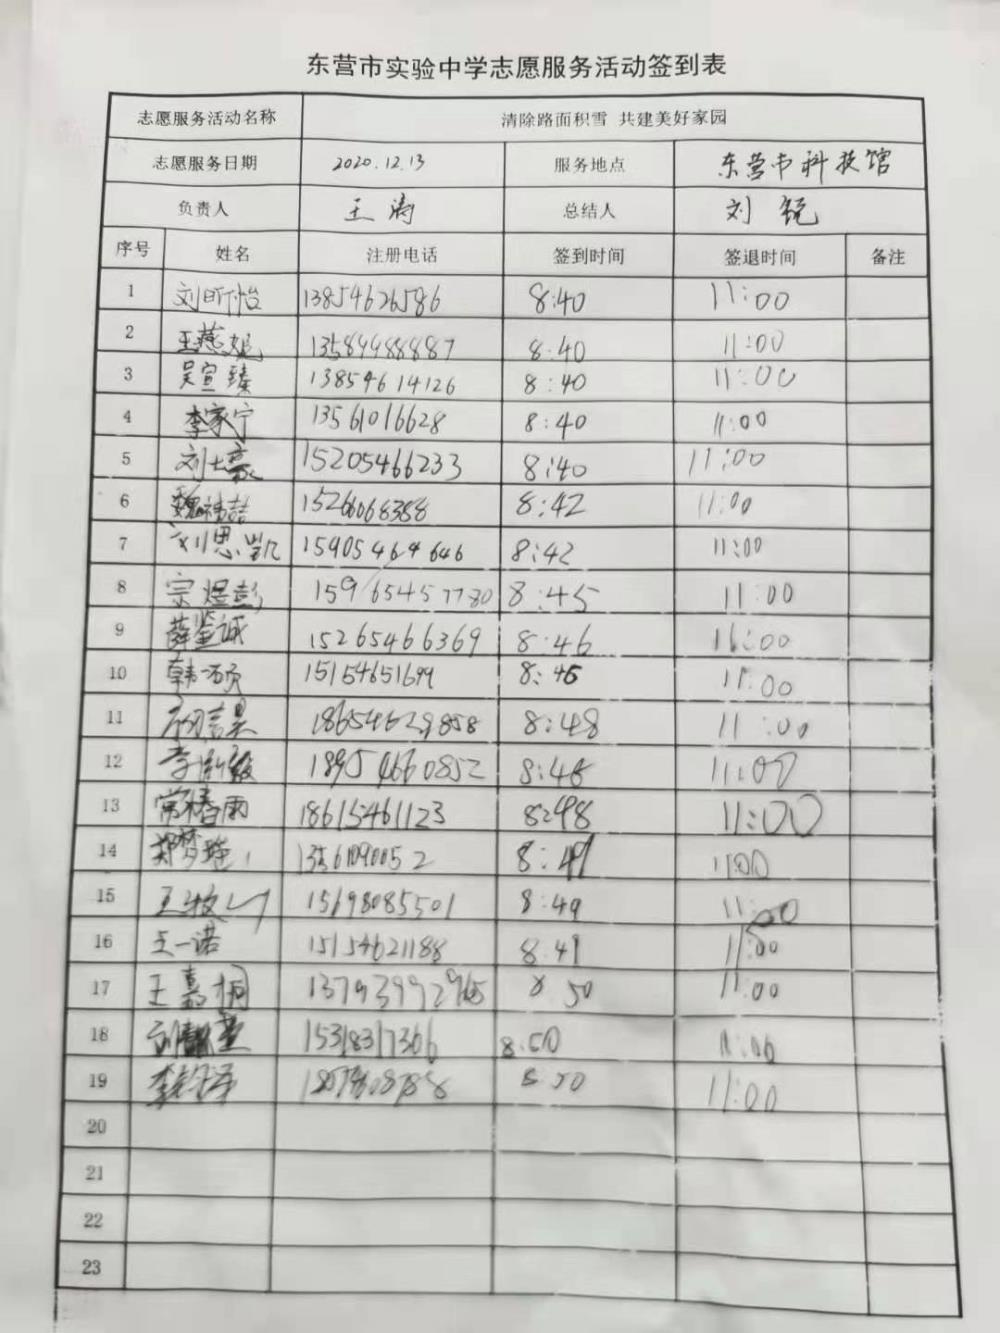 东营市实验中学志愿服务活动签到表
志愿服务活动名称 清除路面积雪 共建美好家园
志愿服务日期 2020.12.13 服务地点 东营市科技馆
负责人 王涛 总结人 刘锐
序号 姓名 注册电话 签到时间 签退时间 备注
1 刘昕怡 13854626586 8:40 11:00
2 王燕妮 13589988887 8:40 11:00
3 吴宣臻 13854614126 8:40 11:00
4 李家宁 13561016628 8:40 11:00
5 刘士豪 15205466233 8:40 11:00
6 魏祎喆 15266068388 8:42 11:00
7 刘思凯 15905464646 8:42 11:00
8 宗煜彭 15965457780 8:45 11:00
9 薛鉴诚 15265466369 8:46 11:00
10 韩 15154651699 8:46 11:00
11 18654629858 8:48 11:00
12 李 18954660852 8:48 11:00
13 常椿雨 18615461123 8:48 11:00
14 郑梦瑶 13561090052 8:49 11:00
15 王牧 15698085501 8:49 11:00
16 王一诺 15154621188 8:49 11:00
17 王嘉桐 8 50 11:00
18 刘 15318317366 8.50 11:00
19 李 8 50 11:00
20
21
22
23